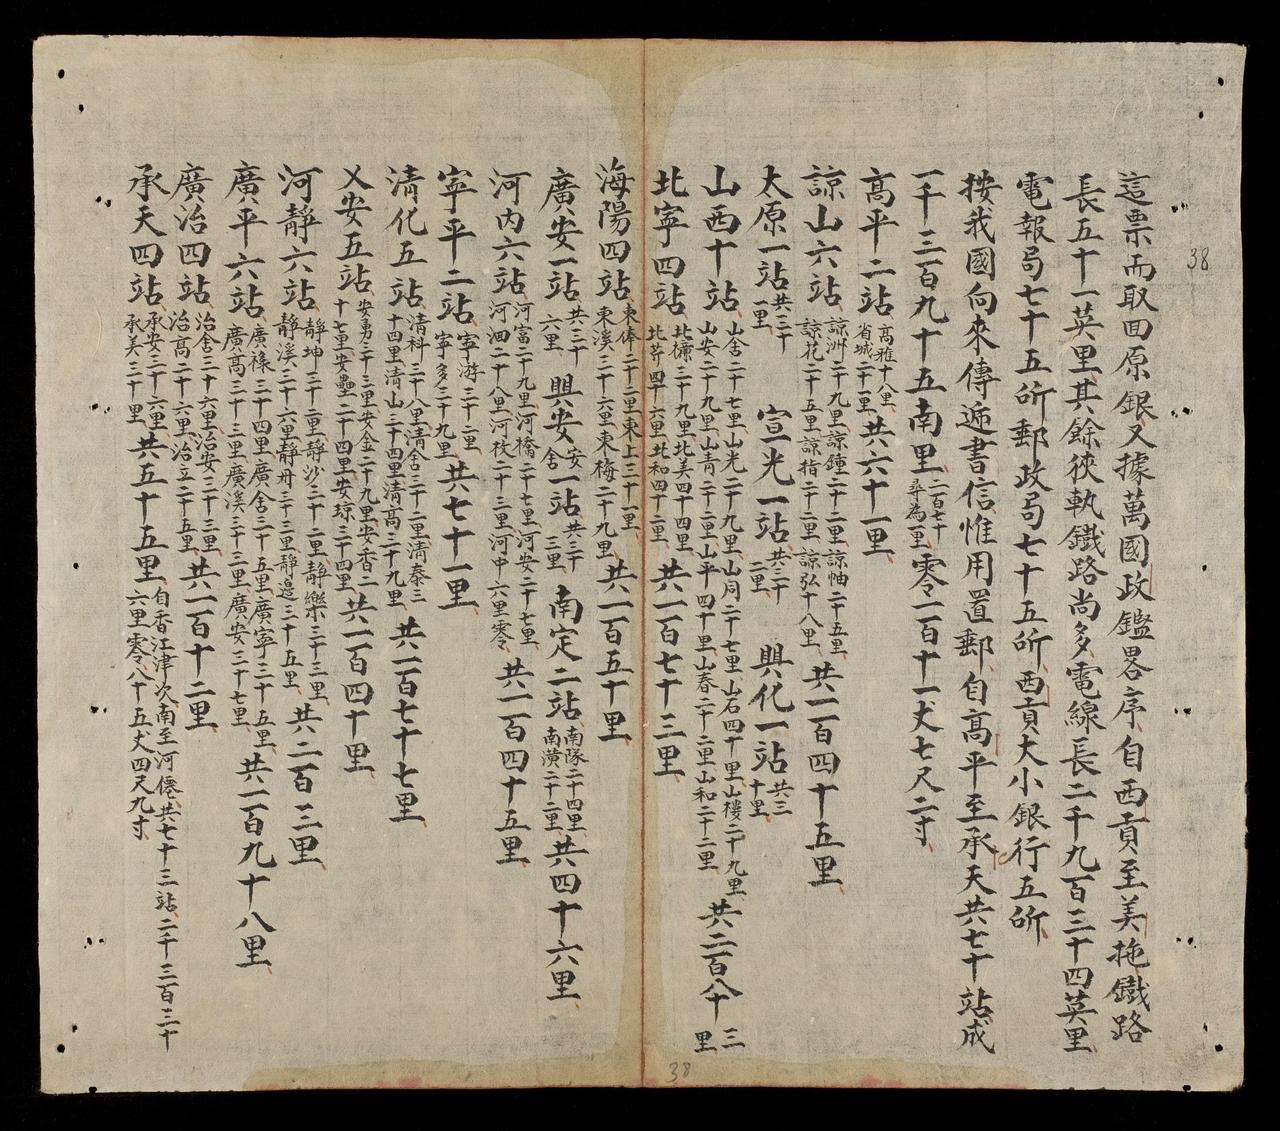 這票而取回原銀又據萬國政鑑畧序自西貢至美拖鐵路
長五十一英里其餘狹軌鐵路尚多電線長二千九百三十四英里
電報局七十五所郵政局七十五所西貢大小銀行五所
按我國向來傳遞書信惟用置郵自高平至承天共七十站成
一千三百九十五南里二百七十尋為一里零一百十一丈七尺二寸
高平二站高雅十八里省城二十里共六十一里
諒山六站諒洲二十九里諒鐘二十二里諒岫二十五里諒花二十五里諒指二十二里諒弘十八里共一百四十五里
太原一站共二十一里 宣光一站共三十二里 興化一站共三十里
山西十站山舍二十七里山光二十九里山同二十七里山石四十里山樓二十九里山安二十九里山青二十二里山平四十里山春二十二里山和二十二里共二百八十三里
北寧四站北㯳三十九里北美四十四里北芹四十六里北和四十二里共一百七十三里
海陽四站東俸二十二里東上三十一里東溪三十六里東梅二十九里共一百五十里
廣安一站共二十六里 興安安舍一站共三十三里 南定二站南隊二十四里南潢二十二里共四十六里
河內六站河富二十九里河橋二十七里河安二十七里河洄二十八里河枚二十三里河中六里零共一百四十五里
寧平二站寧游三十二里寧多三十九里共七十一里
清化五站清科三十八里清舍三十二里清泰三十四里清山三十四里清高三十九里共一百七十七里
乂安五站安勇三十三里安金二十九里安香二十七里安壘二十四里安琼三十四里共一百四十里
河靜六站靜坤三十二里靜沙三十二里靜樂三十三里靜溪三十六里靜冊三十三里靜邉三十五里共二百三里
廣平六站廣祿三十四里廣舍三十五里廣寧三十五里廣高三十三里廣溪三十三里廣安三十七里共一百九十八里
廣治四站治舍三十六里治安二十三里治高二十六里治立二十五里共一百十二里
承天四站承安二十六里承美三十里共五十五里自香江津次南至河僊共七十三站二千三百三十六里零八十五丈四尺九寸
38
38